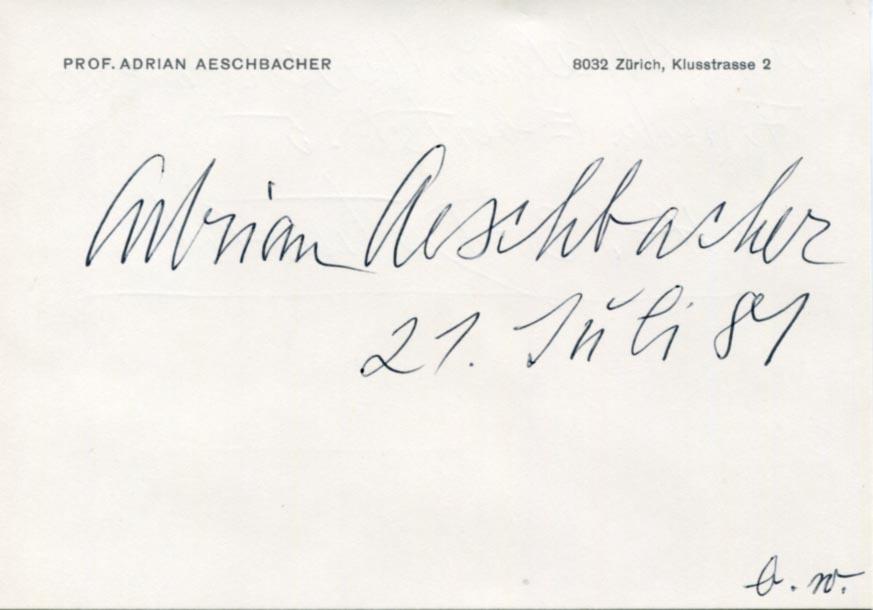 PROF. ADRIAN AESCHBACHER 8032 Zürich, Klusstrasse 2
Adrian Aeschbacher
21. Juli 81
b. w.